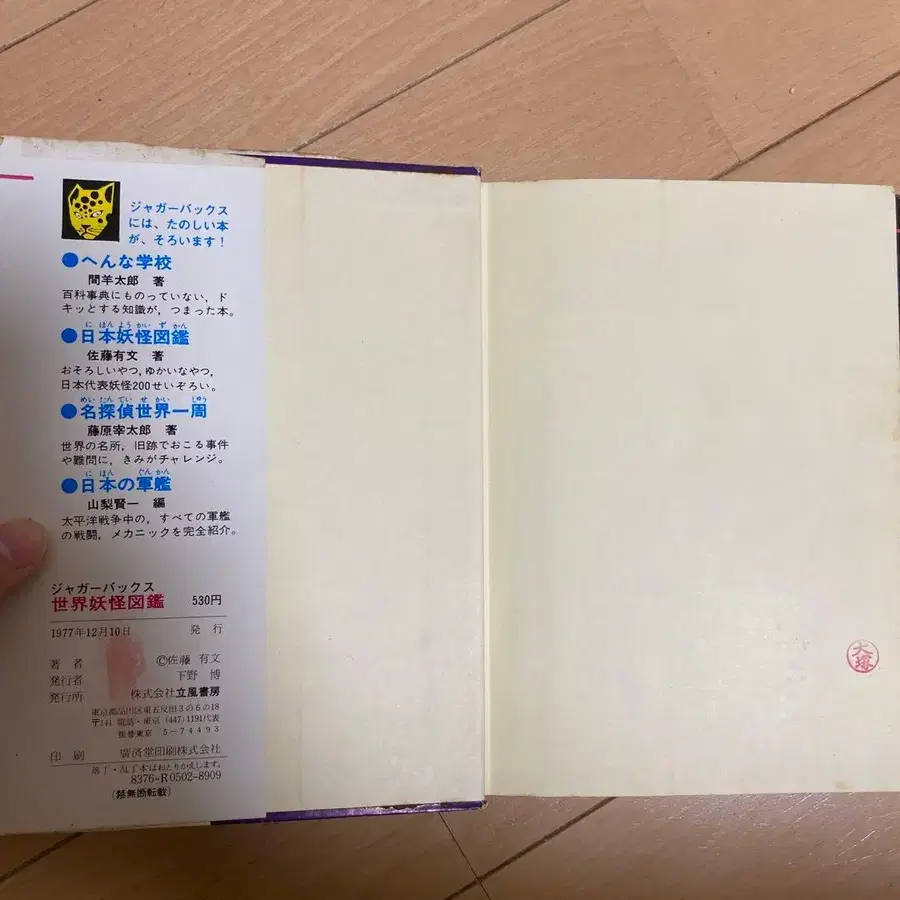 ジャガーバックス
には、たのしい本
が、そろいます！
●へんな学校
間羊太郎 著
百科事典にものっていない，ド
キッとする知識が，つまった本。
にほんようかいずかん
●日本妖怪図鑑
佐藤有文 著
おそろしいやつ，ゆかいなやつ，
日本代表妖怪200せいぞろい。
めいたんていせかいしゅう
●名探偵世界一周
藤原宰太郎 著
世界の名所，旧跡でおこる事件
や難問に，きみがチャレンジ。
にほんぐんかん
●日本の軍艦
山梨賢一 編
太平洋戦争中の，すべての軍艦
の戦闘，メカニックを完全紹介。
ジャガーバックス
世界妖怪図鑑 530円
1977年12月10日 発行
著者 ©佐藤 有文
発行者 下野 博
発行所 株式会社立風書房
東京都品川区東五反田3の6の18
〒141 電話・東京 (447)1191代表
振替東京 5-74493
印刷 廣済堂印刷株式会社
落丁・乱丁本はおとりかえします。
8376-R0502-8909
(禁無断転載)
大塚